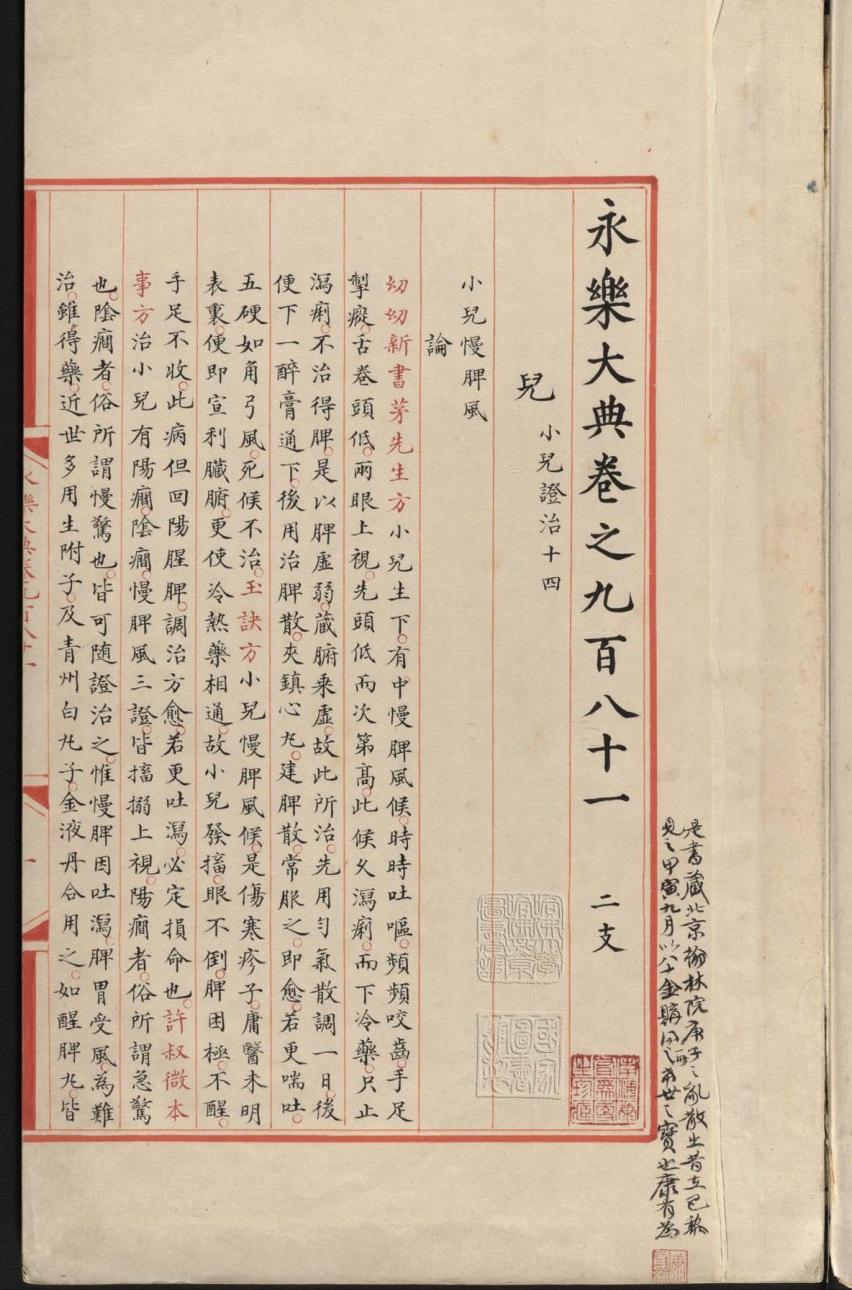 永樂大典卷之九百八十一 二支
兒 小兒證治十四
小兒慢脾風
論
幼幼新書茅先生方小兒生下。有中慢脾風候。時時吐嘔。頻頻咬齒。手足
掣瘲。舌卷頭低。兩眼上視。先頭低而次第高。此候久瀉痢。而下冷藥。只止
瀉痢。不治得脾。是以脾虛弱。藏腑乘虛。故此所治。先用勻氣散調一日。後
便下一醉膏通下。後用治脾散。夾鎮心丸。建脾散。常服之。即愈。若更喘吐。
五硬如角弓風。死候不治。玉訣方小兒慢脾風候。是傷寒疹子。庸醫未明
表裏。便即宣利臟腑。更使冷熱藥相通。故小兒發搐。眼不倒。脾困極。不醒。
手足不收。此病但回陽腥脾。調治方愈。若更吐瀉。必定損命也。許叔微本
事方治小兒有陽癎。陰癎。慢脾風三證。皆搐搦上視。陽癎者。俗所謂急驚
也。陰癎者。俗所謂慢驚也。皆可随證治之。惟慢脾因吐瀉。脾胃受風。為難
治。雖得藥。近世多用生附子。及青州白丸子。金液丹合用之。如醒脾丸。皆
永樂大典卷九百八十一
一
是書藏北京翰林院庚子之亂散出昔在已
見之甲寅九月以八十金購得世之寶也康有為